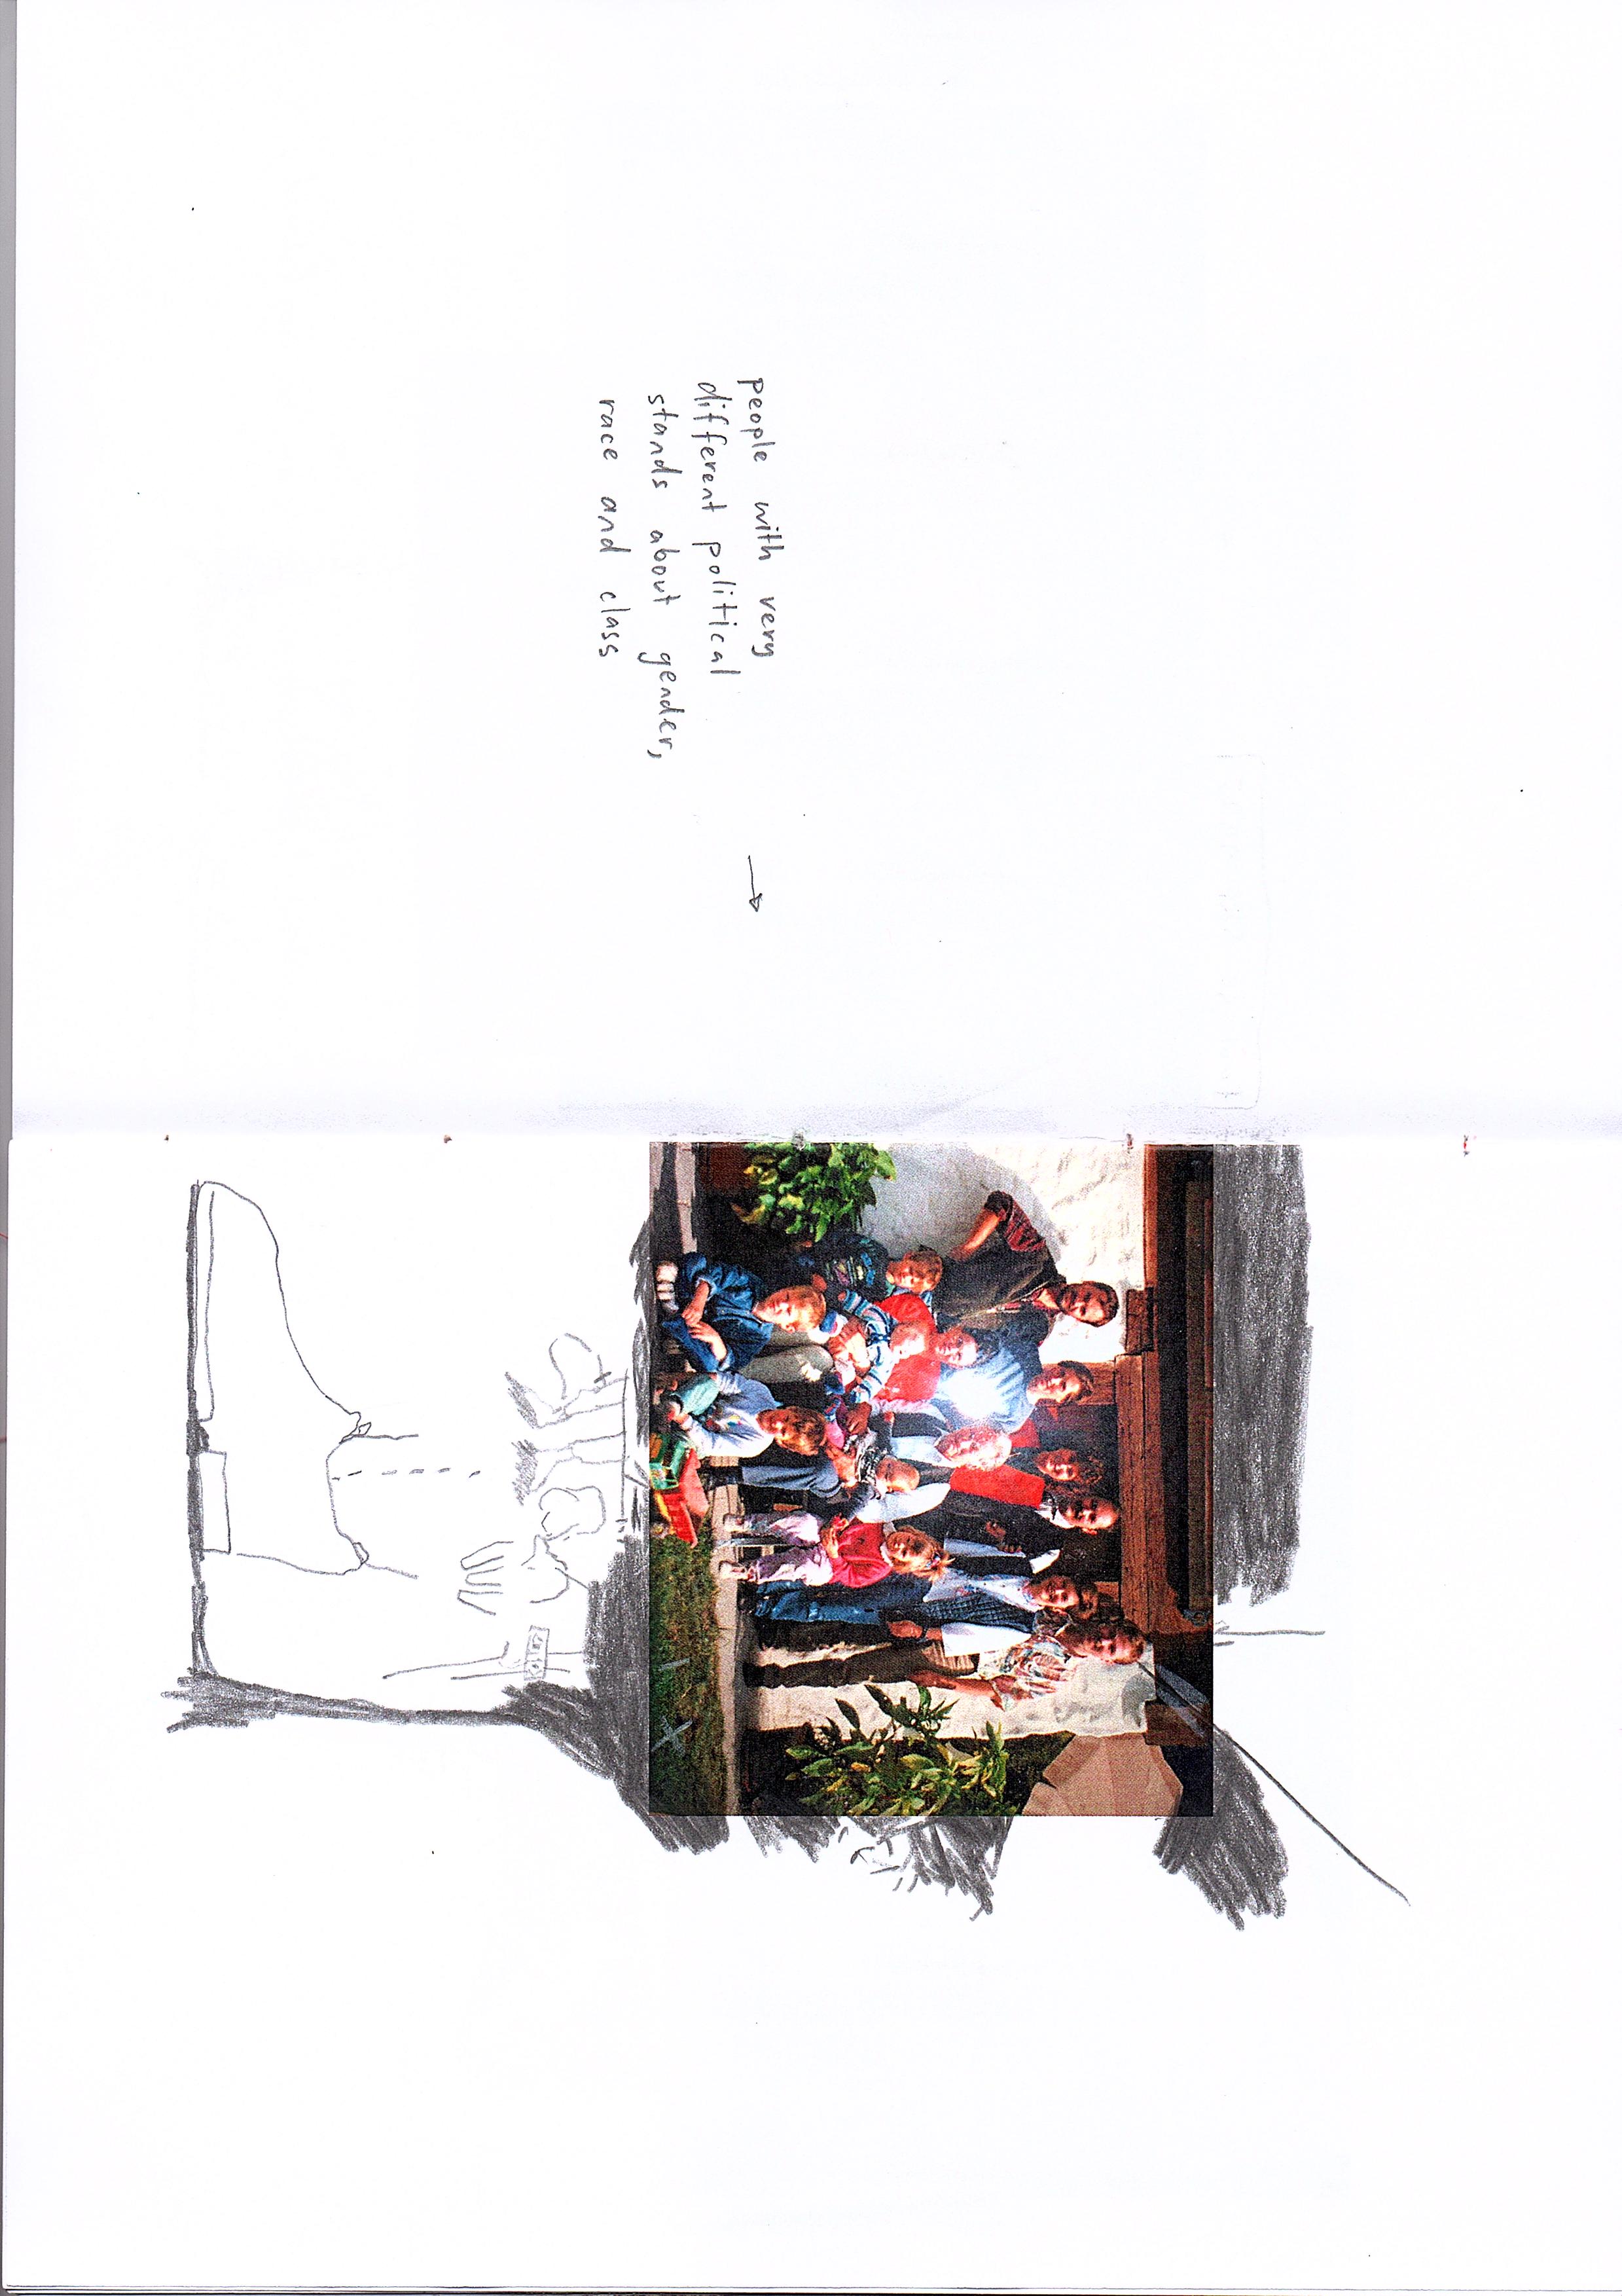 people with very
different political
stands about gender,
race and class